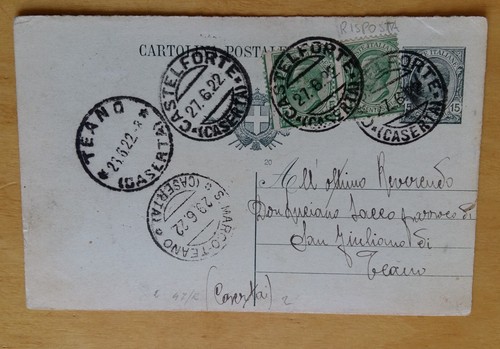 RISPOSTA
CARTOLINA POSTALE
CASTELFORTE
27.6.22
(CASERTA)
CASTELFORTE
27.6.22
(CASERTA)
CASTELFORTE
(CASERTA)
15
TEANO
(CASERTA)
S. MARCO TEANO
(CASERTA)
29.6.22
20
All'ottimo Reverendo
Don
Sacco parroco di
San Giuliano di
Teano
(Caserta)